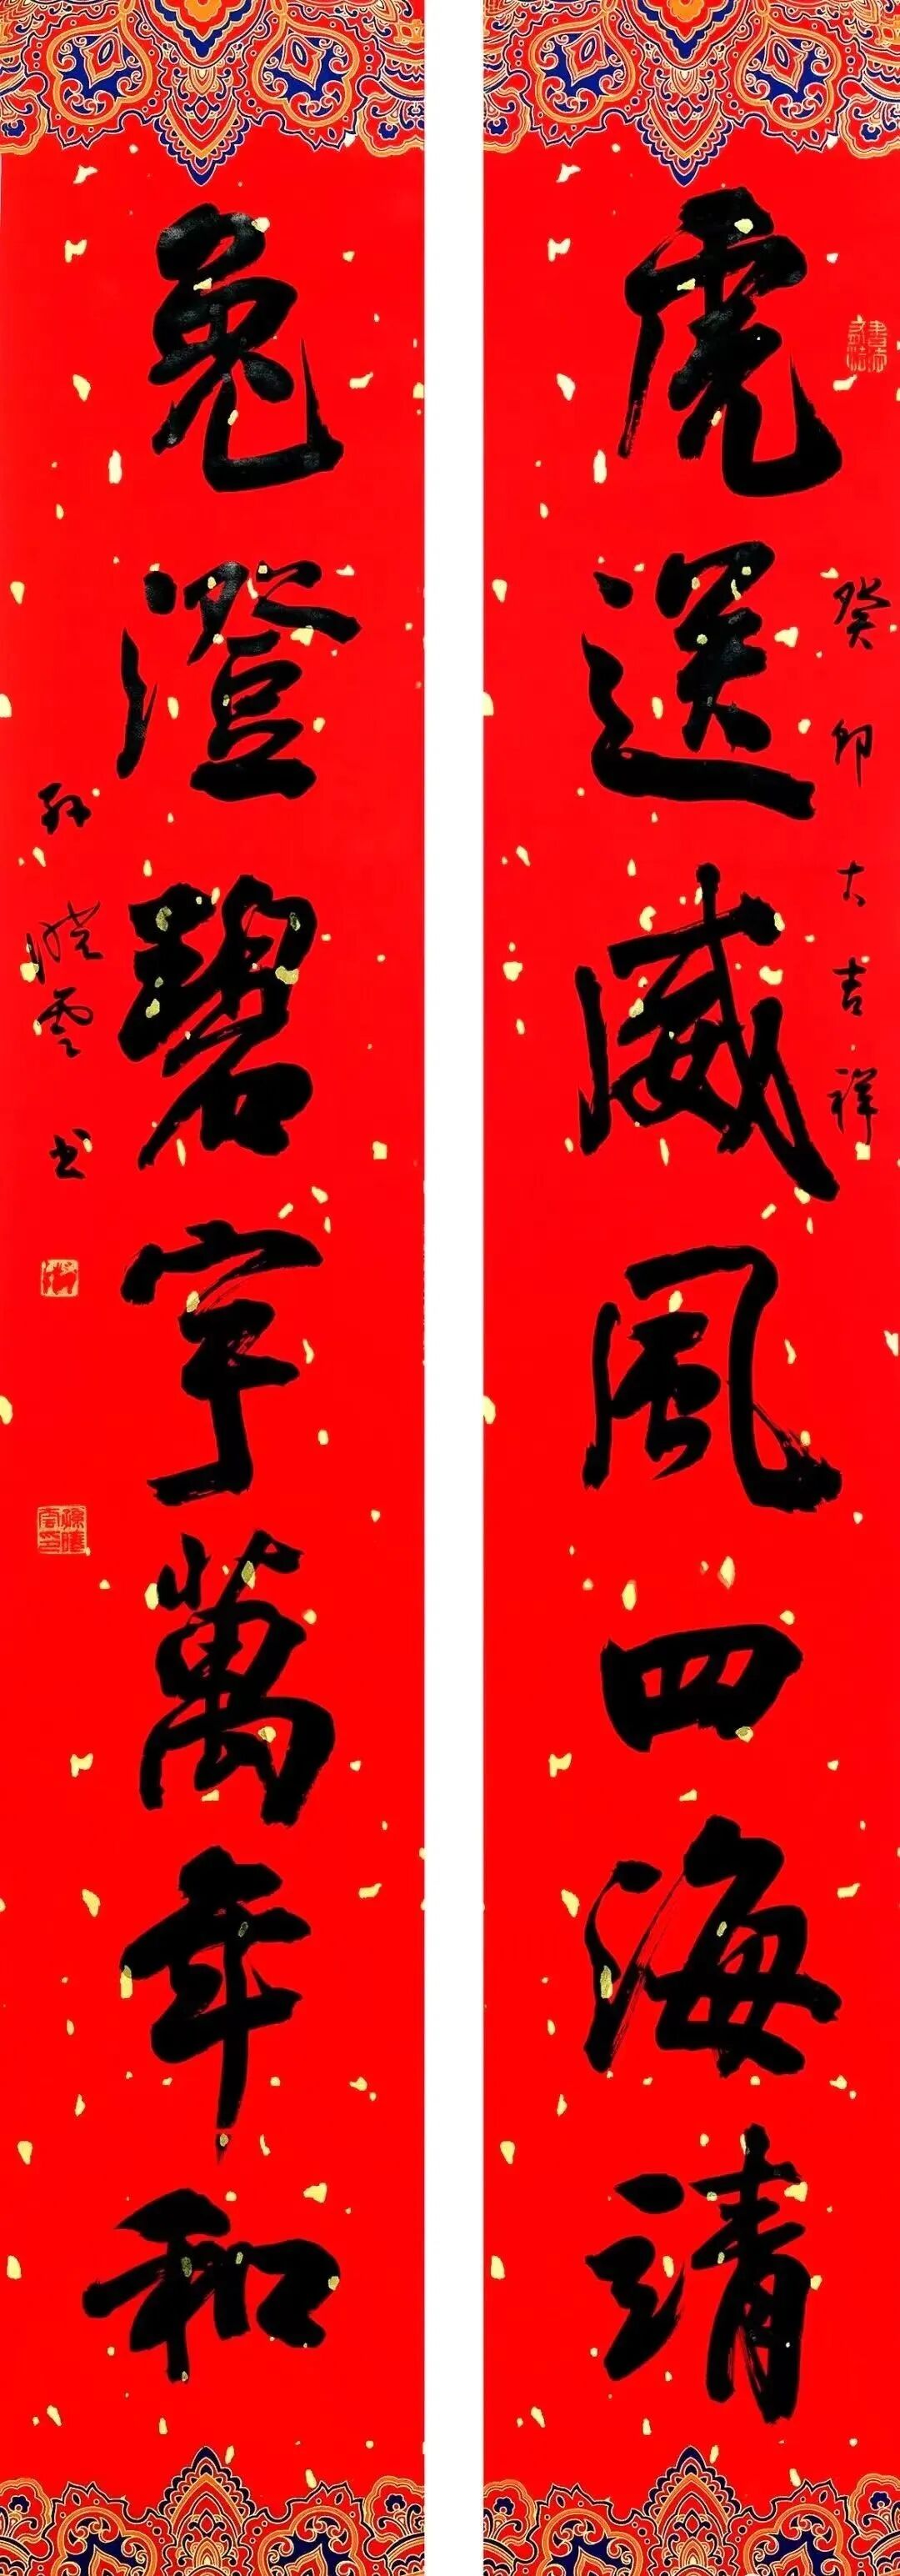 虎送威風四海靖
癸卯大吉祥
兔澄碧宇萬年和
孫曉雲书